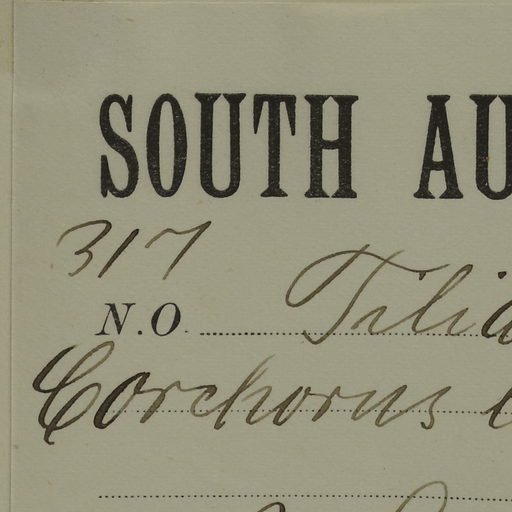 SOUTH AU
317
N.O. Tilia
Corchorus